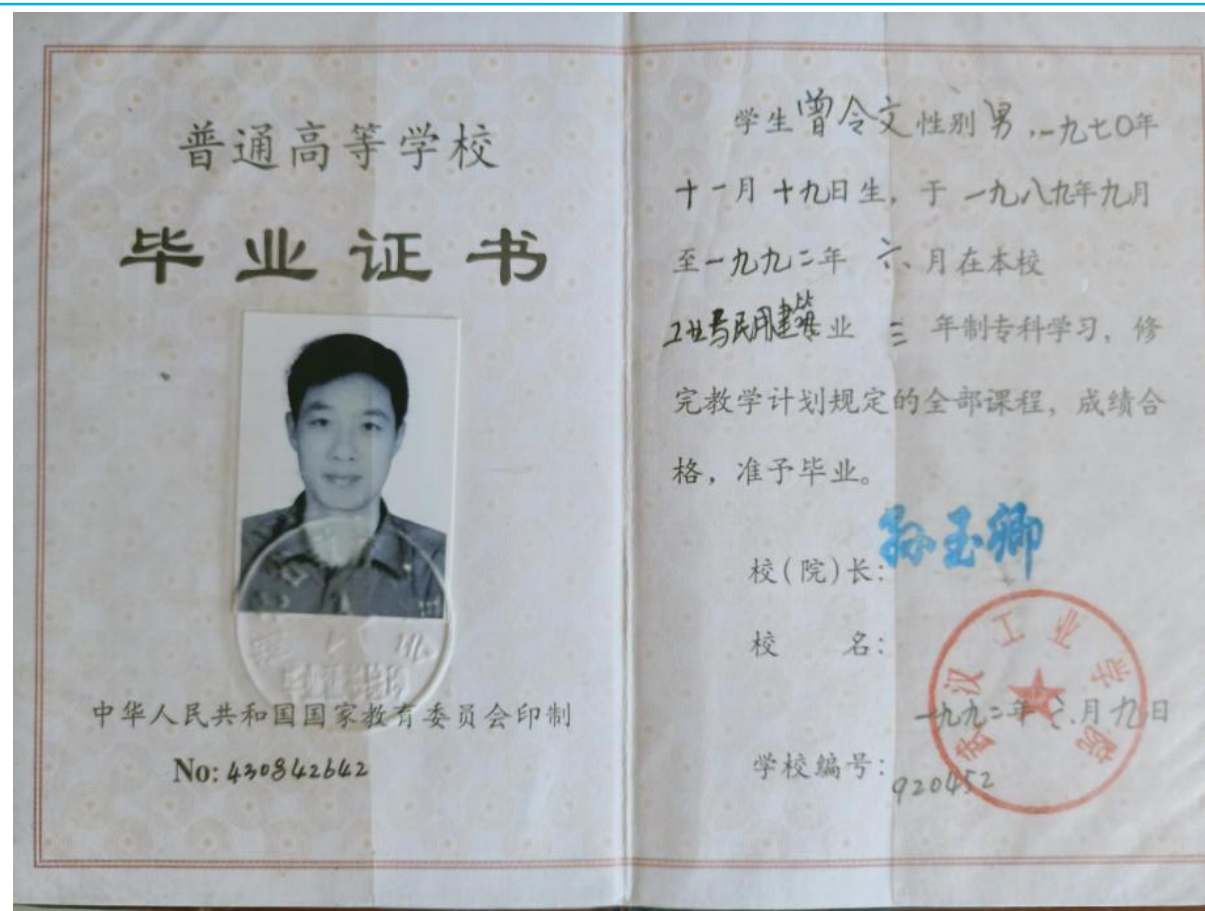 普通高等学校
毕业证书
中华人民共和国国家教育委员会印制
No: 430842642
学生曾令文性别男,一九七〇年
十一月十九日生,于一九八九年九月
至一九九二年六月在本校
工业与民用建筑业三年制专科学习,修
完教学计划规定的全部课程,成绩合
格,准予毕业。
校(院)长:孙玉卿
校 名:
武汉工业学院
一九九二年 月九日
学校编号:920452